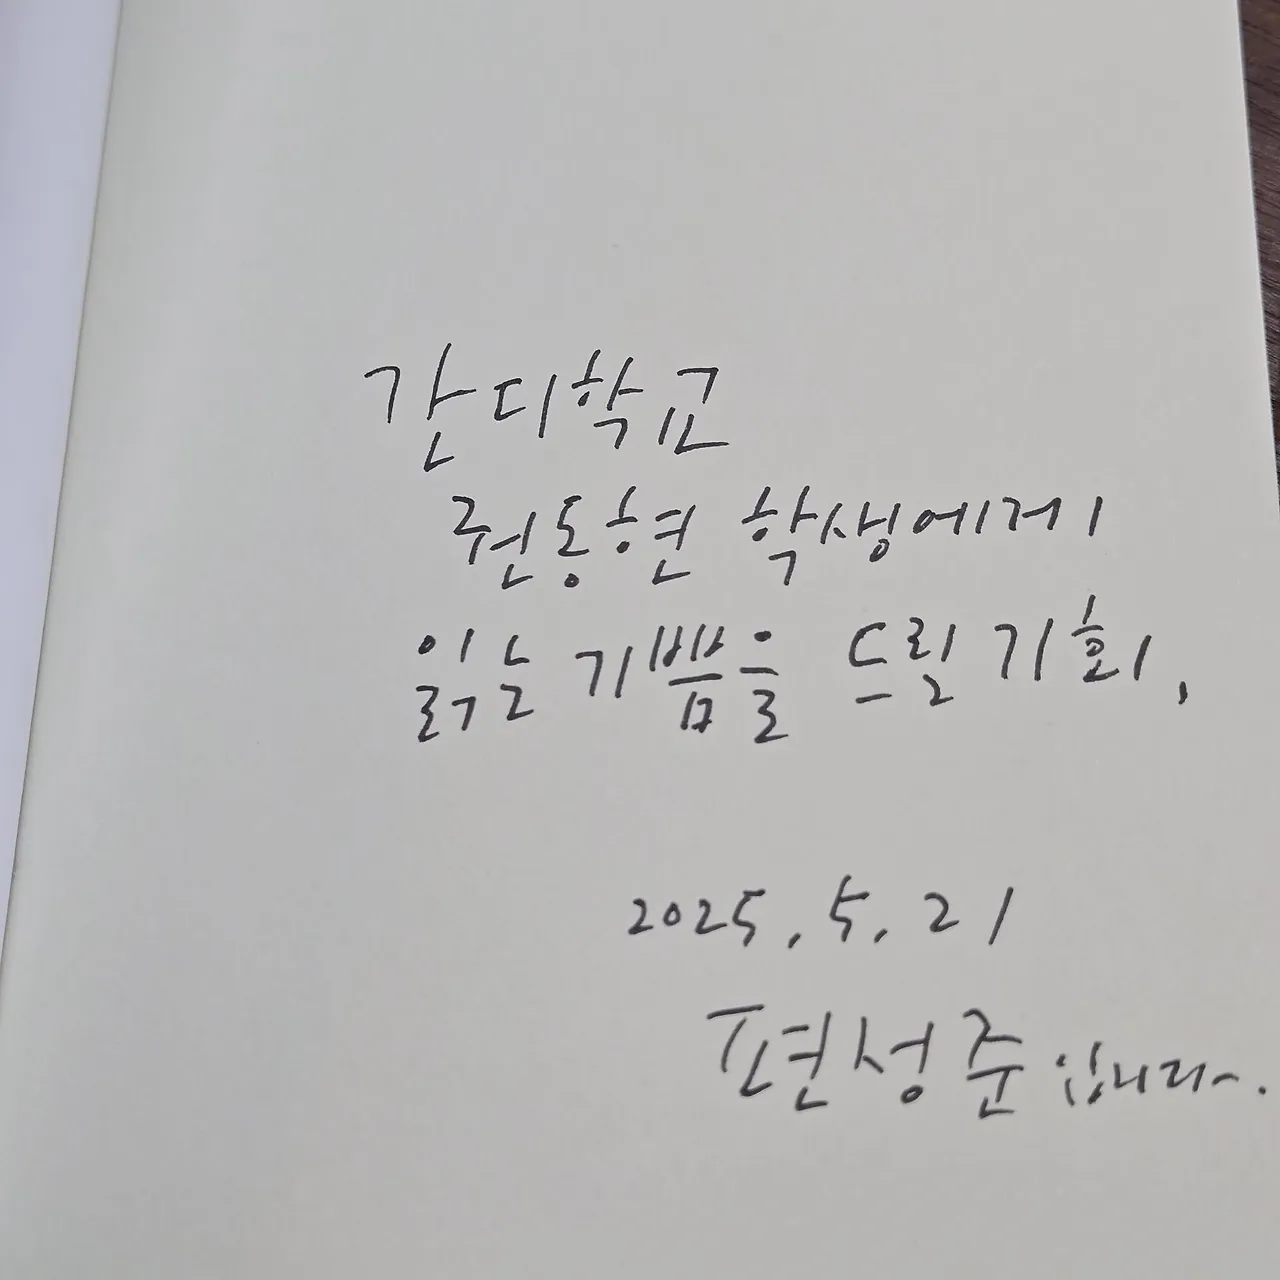 간디학교
권동현 학생에게
읽는 기쁨을 드릴 기회,
2025. 5. 21
편성준입니다~.